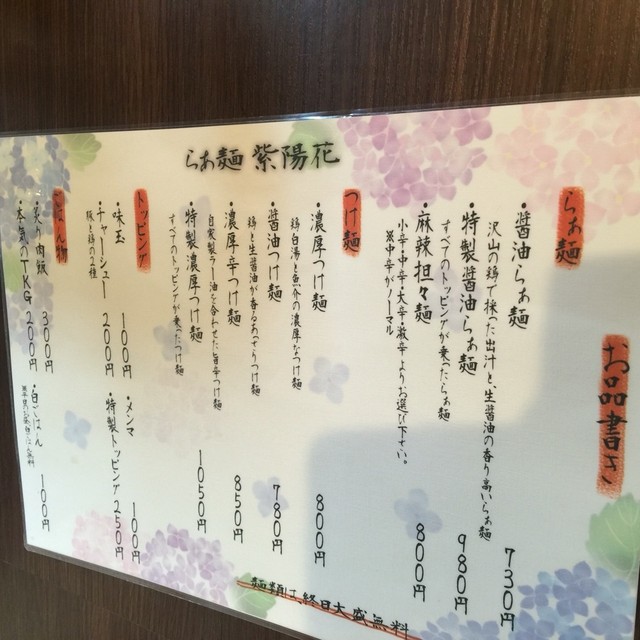 お品書き
らぁ麺 紫陽花
らぁ麺
・醤油らぁ麺 730円
沢山の鶏で採った出汁と、生醤油の香り高いらぁ麺
・特製醤油らぁ麺 980円
すべてのトッピングが乗ったらぁ麺
・麻辣担々麺 800円
小辛・中辛・大辛・激辛よりお選び下さい。
※中辛がノーマル
つけ麺
・濃厚つけ麺 800円
鶏白湯と魚介の濃厚なつけ麺
・醤油つけ麺 780円
鶏と生醤油が香るあっさりつけ麺
・濃厚辛つけ麺 850円
自家製ラー油を合わせた旨辛つけ麺
・特製濃厚つけ麺 1050円
すべてのトッピングが乗ったつけ麺
トッピング
・味玉 100円
・メンマ 100円
・チャーシュー 200円
豚と鶏の2種
・特製トッピング 250円
ごはん物
・炙り肉飯 300円
・白ごはん 100円
・本気のTKG 200円
麺類は終日大盛無料